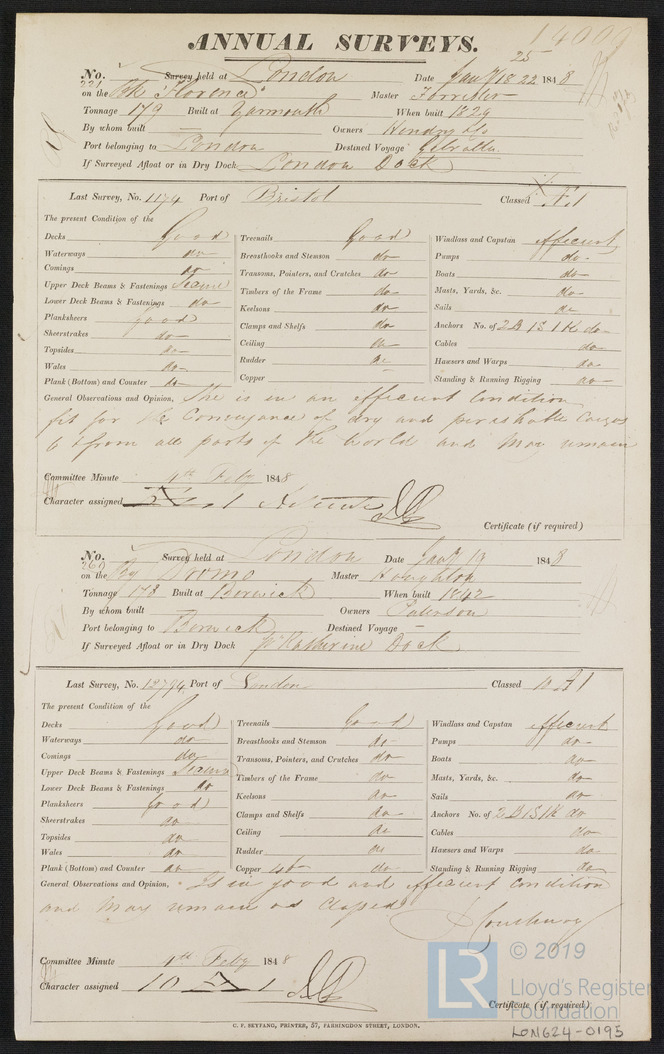 ANNUAL SURVEYS.
25
No. 221 Survey held at London Date Jany 18 22 1848
on the Bk "Florence" Master Forrester
Tonnage 179 Built at Yarmouth When built 1829
By whom built — Owners Hendry &
Port belonging to London Destined Voyage Gibralta
If Surveyed Afloat or in Dry Dock London Dock
Last Survey, No. 1174 Port of Bristol Classed Æ 1
The present Condition of the
Decks Good Treenails Good Windlass and Capstan efficient
Waterways do Breasthooks and Stemson do Pumps do
Comings do Transoms, Pointers, and Crutches do Boats do
Upper Deck Beams & Fastenings Seams Timbers of the Frame do Masts, Yards, &c. do
Lower Deck Beams & Fastenings do Keelsons do Sails do
Planksheers good Clamps and Shelfs do Anchors No. of 2 B 1 S 1 K do
Sheerstrakes do Ceiling do Cables do
Topsides do Rudder do Hawsers and Warps do
Wales do Copper — Standing & Running Rigging do
Plank (Bottom) and Counter do
General Observations and Opinion, She is in an efficient Condition
fit for the Conveyance of dry and perishable Cargos
to & from all parts of the World and May remain
Committee Minute 4th Feby 1848
Character assigned Æ 1
Certificate (if required)
No. 260 Survey held at London Date Jany 19 1848
on the Bg Dromo Master Houghton
Tonnage 178 Built at Berwick When built 1842
By whom built Owners Paterson
Port belonging to Berwick Destined Voyage —
If Surveyed Afloat or in Dry Dock St Katherine Dock
Last Survey, No. 13794 Port of London Classed 10 A 1
The present Condition of the
Decks Good Treenails Good Windlass and Capstan efficient
Waterways do Breasthooks and Stemson do Pumps do
Comings do Transoms, Pointers, and Crutches do Boats do
Upper Deck Beams & Fastenings Seams Timbers of the Frame do Masts, Yards, &c. do
Lower Deck Beams & Fastenings do Keelsons do Sails do
Planksheers good Clamps and Shelfs do Anchors No. of 2 B 1 S 1 K do
Sheerstrakes do Ceiling do Cables do
Topsides do Rudder do Hawsers and Warps do
Wales do Copper do Standing & Running Rigging do
Plank (Bottom) and Counter do
General Observations and Opinion, Is in good and efficient Condition
and May remain as Classed
Committee Minute 4th Feby 1848
Character assigned 10 A 1
Certificate (if required)
C. F. SEYFANG, PRINTER, 57, FARRINGDON STREET, LONDON.
LR © 2019
Lloyd's Register
Foundation
LON624-0195